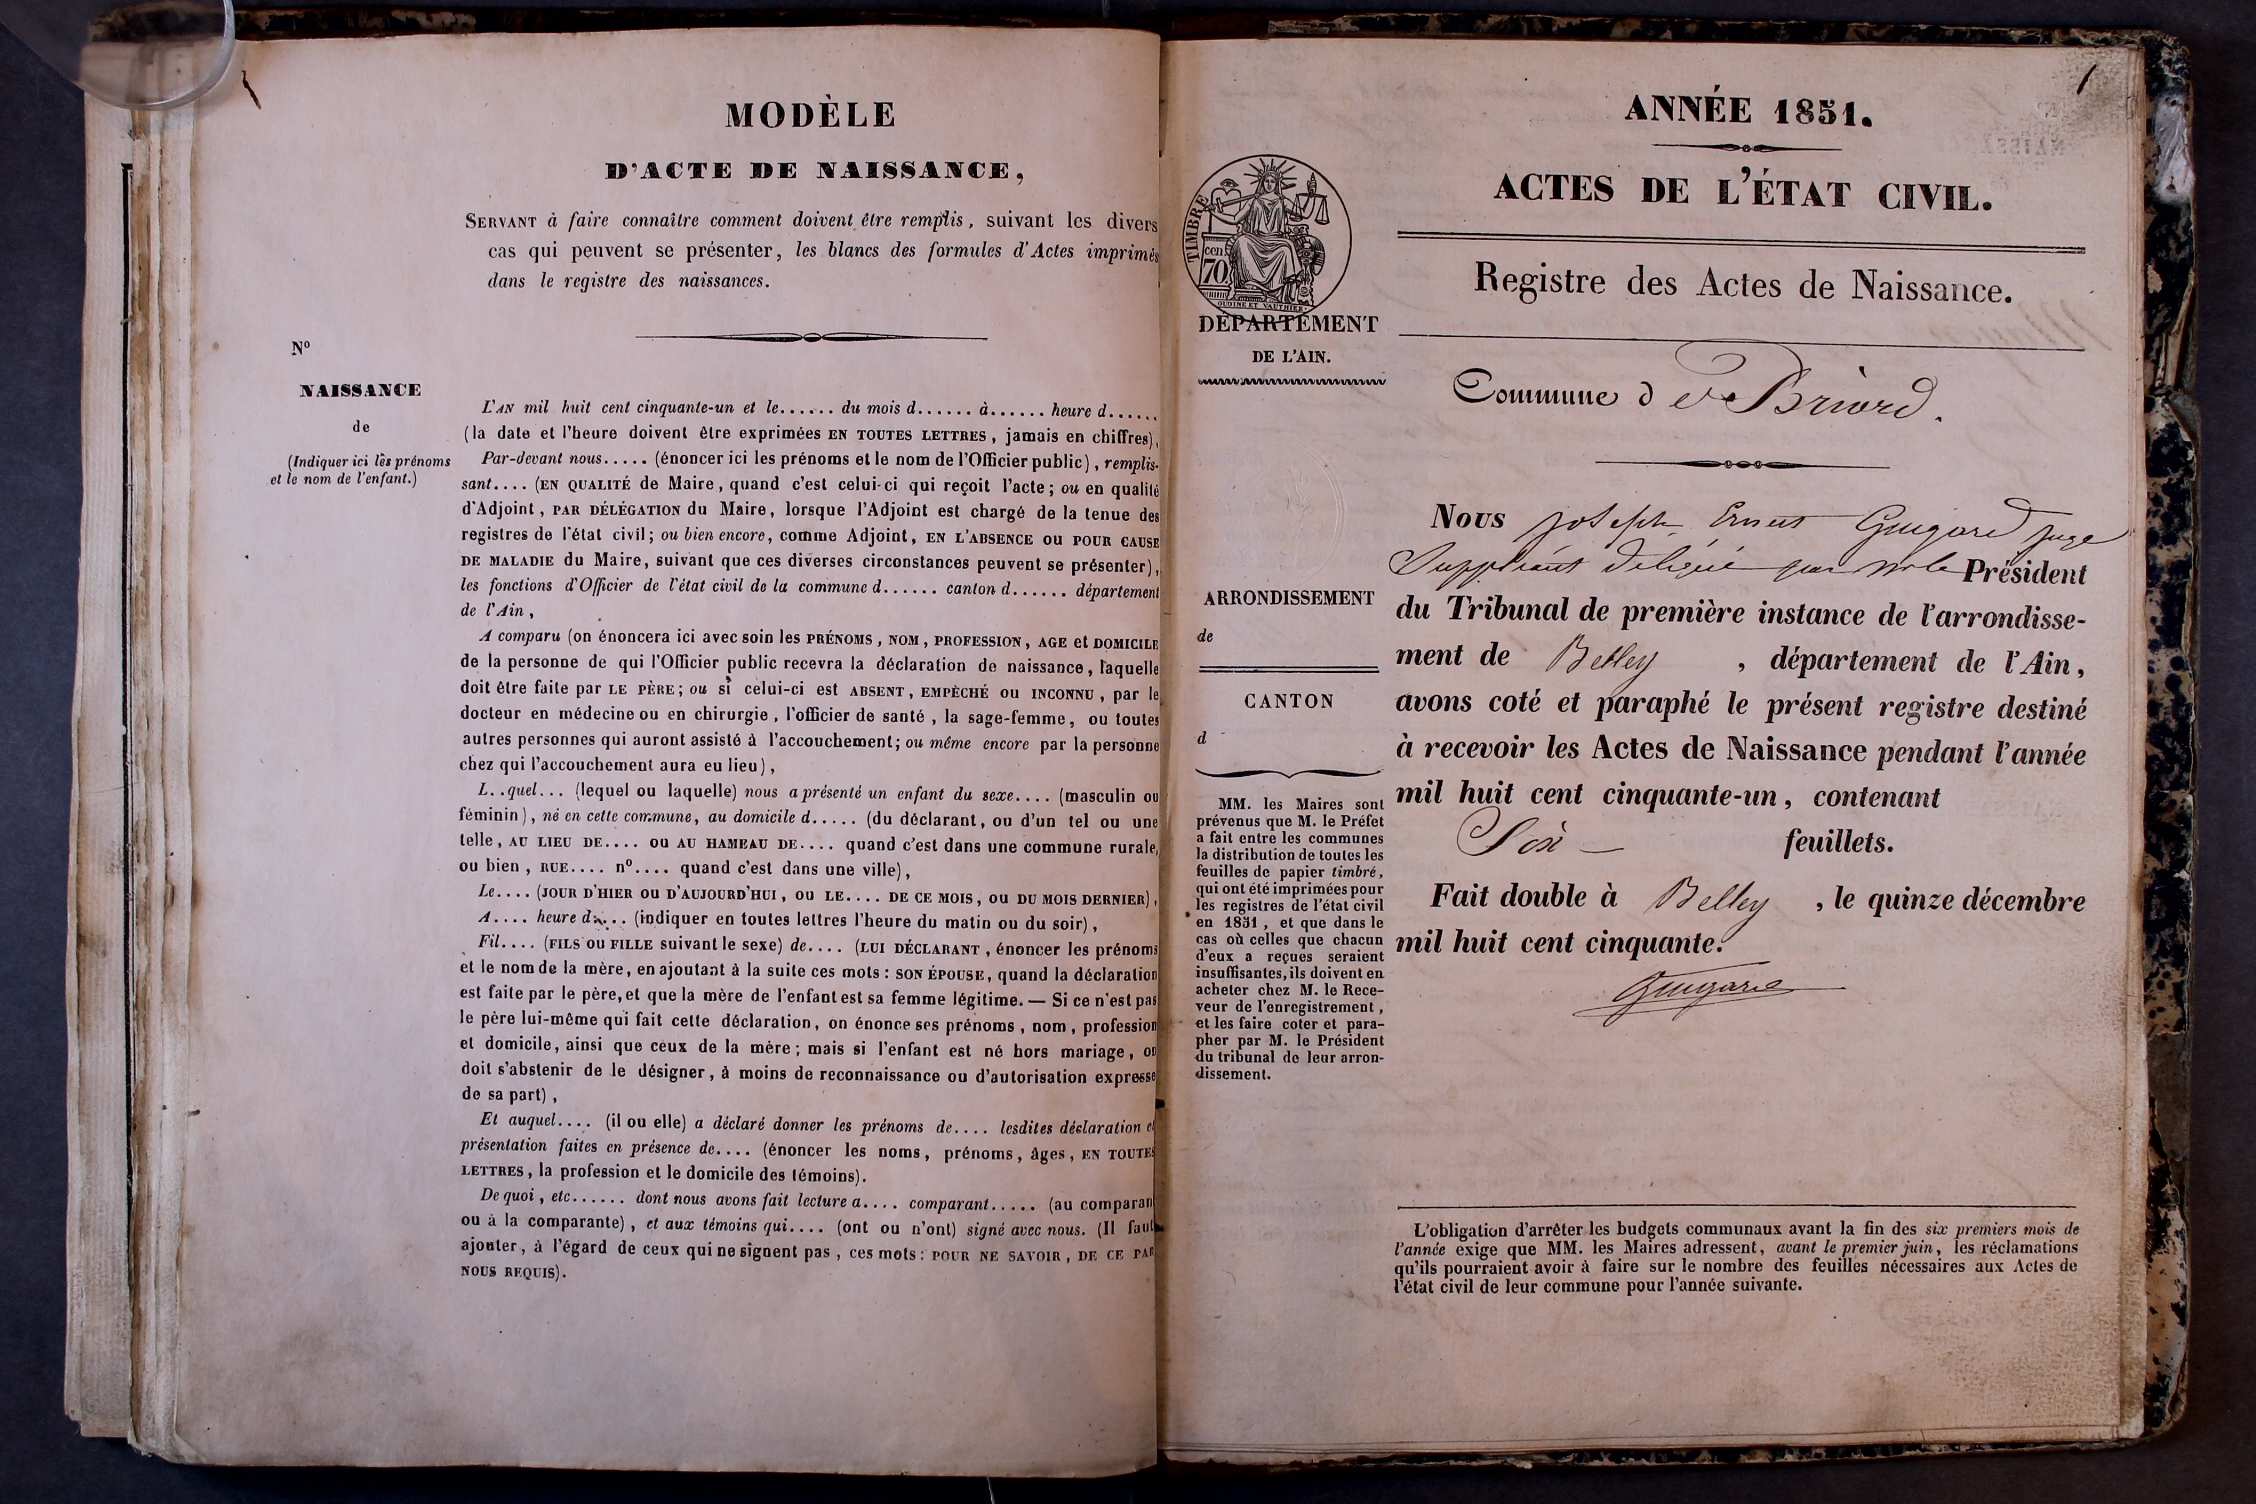 MODÈLE
D'ACTE DE NAISSANCE,
SERVANT à faire connaître comment doivent être remplis, suivant les divers
cas qui peuvent se présenter, les blancs des formules d'Actes imprimés
dans le registre des naissances.
No
NAISSANCE
de
(Indiquer ici les prénoms
et le nom de l'enfant.)
L'AN mil huit cent cinquante-un et le...... du mois d...... à...... heure d......
(la date et l'heure doivent être exprimées EN TOUTES LETTRES, jamais en chiffres),
Par-devant nous..... (énoncer ici les prénoms et le nom de l'Officier public), remplis-
sant.... (EN QUALITÉ de Maire, quand c'est celui-ci qui reçoit l'acte; ou en qualité
d'Adjoint, PAR DÉLÉGATION du Maire, lorsque l'Adjoint est chargé de la tenue des
registres de l'état civil; ou bien encore, comme Adjoint, EN L'ABSENCE OU POUR CAUSE
DE MALADIE du Maire, suivant que ces diverses circonstances peuvent se présenter),
les fonctions d'Officier de l'état civil de la commune d...... canton d...... département
de l'Ain,
A comparu (on énoncera ici avec soin les PRÉNOMS, NOM, PROFESSION, AGE et DOMICILE
de la personne de qui l'Officier public recevra la déclaration de naissance, laquelle
doit être faite par LE PÈRE; ou si celui-ci est ABSENT, EMPÊCHÉ OU INCONNU, par le
docteur en médecine ou en chirurgie, l'officier de santé, la sage-femme, ou toutes
autres personnes qui auront assisté à l'accouchement; ou même encore par la personne
chez qui l'accouchement aura eu lieu),
L..quel... (lequel ou laquelle) nous a présenté un enfant du sexe.... (masculin ou
féminin), né en cette commune, au domicile d..... (du déclarant, ou d'un tel ou une
telle, AU LIEU DE.... OU AU HAMEAU DE.... quand c'est dans une commune rurale,
ou bien, RUE.... no.... quand c'est dans une ville),
Le.... (JOUR D'HIER OU D'AUJOURD'HUI, OU LE.... DE CE MOIS, OU DU MOIS DERNIER),
A.... heure d.... (indiquer en toutes lettres l'heure du matin ou du soir),
Fil.... (FILS OU FILLE suivant le sexe) de.... (LUI DÉCLARANT, énoncer les prénoms
et le nom de la mère, en ajoutant à la suite ces mots: SON ÉPOUSE, quand la déclaration
est faite par le père, et que la mère de l'enfant est sa femme légitime. — Si ce n'est pas
le père lui-même qui fait cette déclaration, on énonce ses prénoms, nom, profession
et domicile, ainsi que ceux de la mère; mais si l'enfant est né hors mariage, on
doit s'abstenir de le désigner, à moins de reconnaissance ou d'autorisation expresse
de sa part),
Et auquel.... (il ou elle) a déclaré donner les prénoms de.... lesdites déclaration et
présentation faites en présence de.... (énoncer les noms, prénoms, âges, EN TOUTES
LETTRES, la profession et le domicile des témoins).
De quoi, etc...... dont nous avons fait lecture a.... comparant..... (au comparant
ou à la comparante), et aux témoins qui.... (ont ou n'ont) signé avec nous. (Il faut
ajouter, à l'égard de ceux qui ne signent pas, ces mots: POUR NE SAVOIR, DE CE PAR
NOUS REQUIS).
1
TIMBRE
cen
70
OUDINE ET VAUTHIER
DÉPARTEMENT
DE L'AIN.
ARRONDISSEMENT
de
CANTON
d
MM. les Maires sont
prévenus que M. le Préfet
a fait entre les communes
la distribution de toutes les
feuilles de papier timbré,
qui ont été imprimées pour
les registres de l'état civil
en 1851, et que dans le
cas où celles que chacun
d'eux a reçues seraient
insuffisantes, ils doivent en
acheter chez M. le Rece-
veur de l'enregistrement,
et les faire coter et para-
pher par M. le Président
du tribunal de leur arron-
dissement.
ANNÉE 1851.
ACTES DE L'ÉTAT CIVIL.
Registre des Actes de Naissance.
Commune d e Briord.
Nous joseph Ernest Guigard juge
Suppléant délégué par Mr le Président
du Tribunal de première instance de l'arrondisse-
ment de Belley, département de l'Ain,
avons coté et paraphé le présent registre destiné
à recevoir les Actes de Naissance pendant l'année
mil huit cent cinquante-un, contenant
Six feuillets.
Fait double à Belley, le quinze décembre
mil huit cent cinquante.
Guigard
L'obligation d'arrêter les budgets communaux avant la fin des six premiers mois de
l'année exige que MM. les Maires adressent, avant le premier juin, les réclamations
qu'ils pourraient avoir à faire sur le nombre des feuilles nécessaires aux Actes de
l'état civil de leur commune pour l'année suivante.